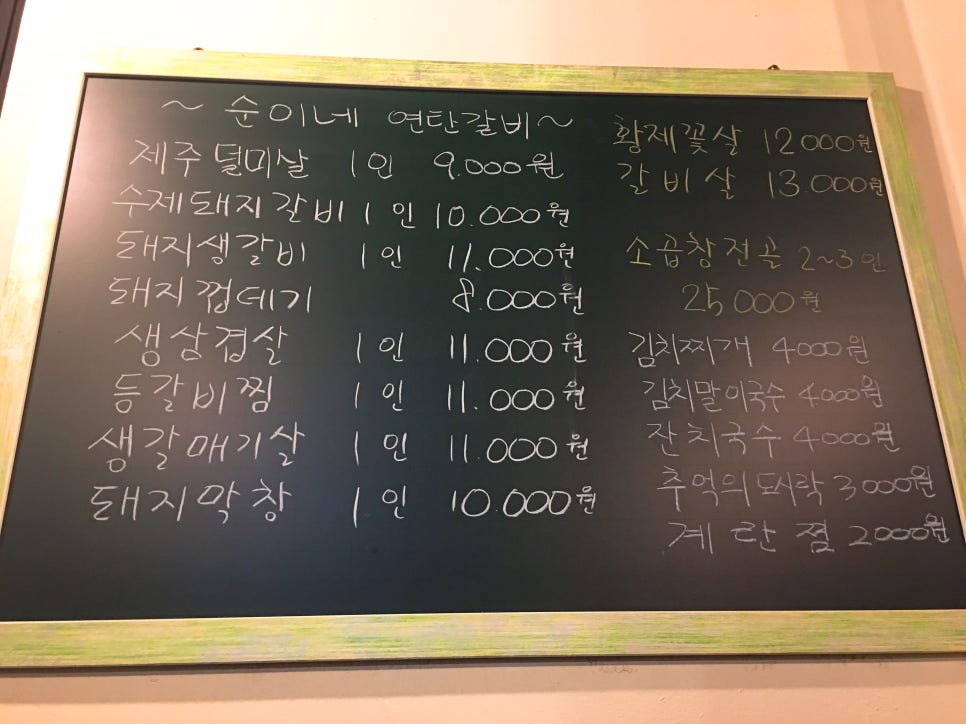 ~ 순이네 연탄갈비 ~
제주 덜미살 1인 9.000원
수제돼지갈비 1인 10.000원
돼지생갈비 1인 11.000원
돼지껍데기 8.000원
생삼겹살 1인 11.000원
등갈비찜 1인 11.000원
생갈매기살 1인 11.000원
돼지막창 1인 10.000원
황제꽃살 12000원
갈비살 13.000원
소곱창전골 2~3인
25000원
김치찌개 4000원
김치말이국수 4000원
잔치국수 4000원
추억의 도시락 3000원
계란찜 2000원